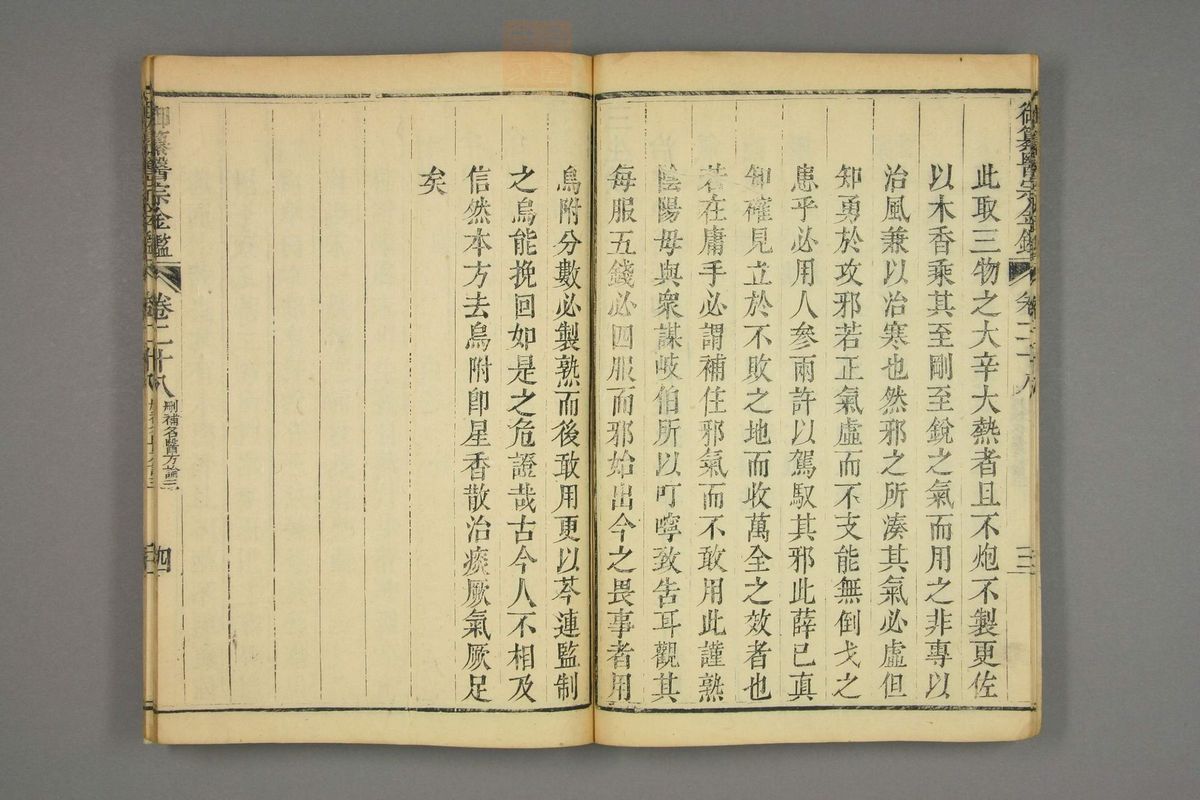 御纂醫宗金鑑
卷二十八
三
此取三物之大辛大熱者且不炮不製更佐
以木香乘其至剛至銳之氣而用之非專以
治風兼以治寒也然邪之所湊其氣必虛但
知勇於攻邪若正氣虛而不支能無倒戈之
患乎必用人參兩許以駕馭其邪此薛己真
知確見立於不敗之地而收萬全之效者也
若在庸手必謂補住邪氣而不敢用此謹熟
陰陽毋與衆謀岐伯所以叮嚀致告耳觀其
每服五錢必四服而邪始出今之畏事者用
烏附分數必製熟而後敢用更以芩連監制
之烏能挽回如是之危證哉古今人不相及
信然本方去烏附卽星香散治痰厥氣厥足
矣
御纂醫宗金鑑
卷二十八
刪補名醫方論三
四